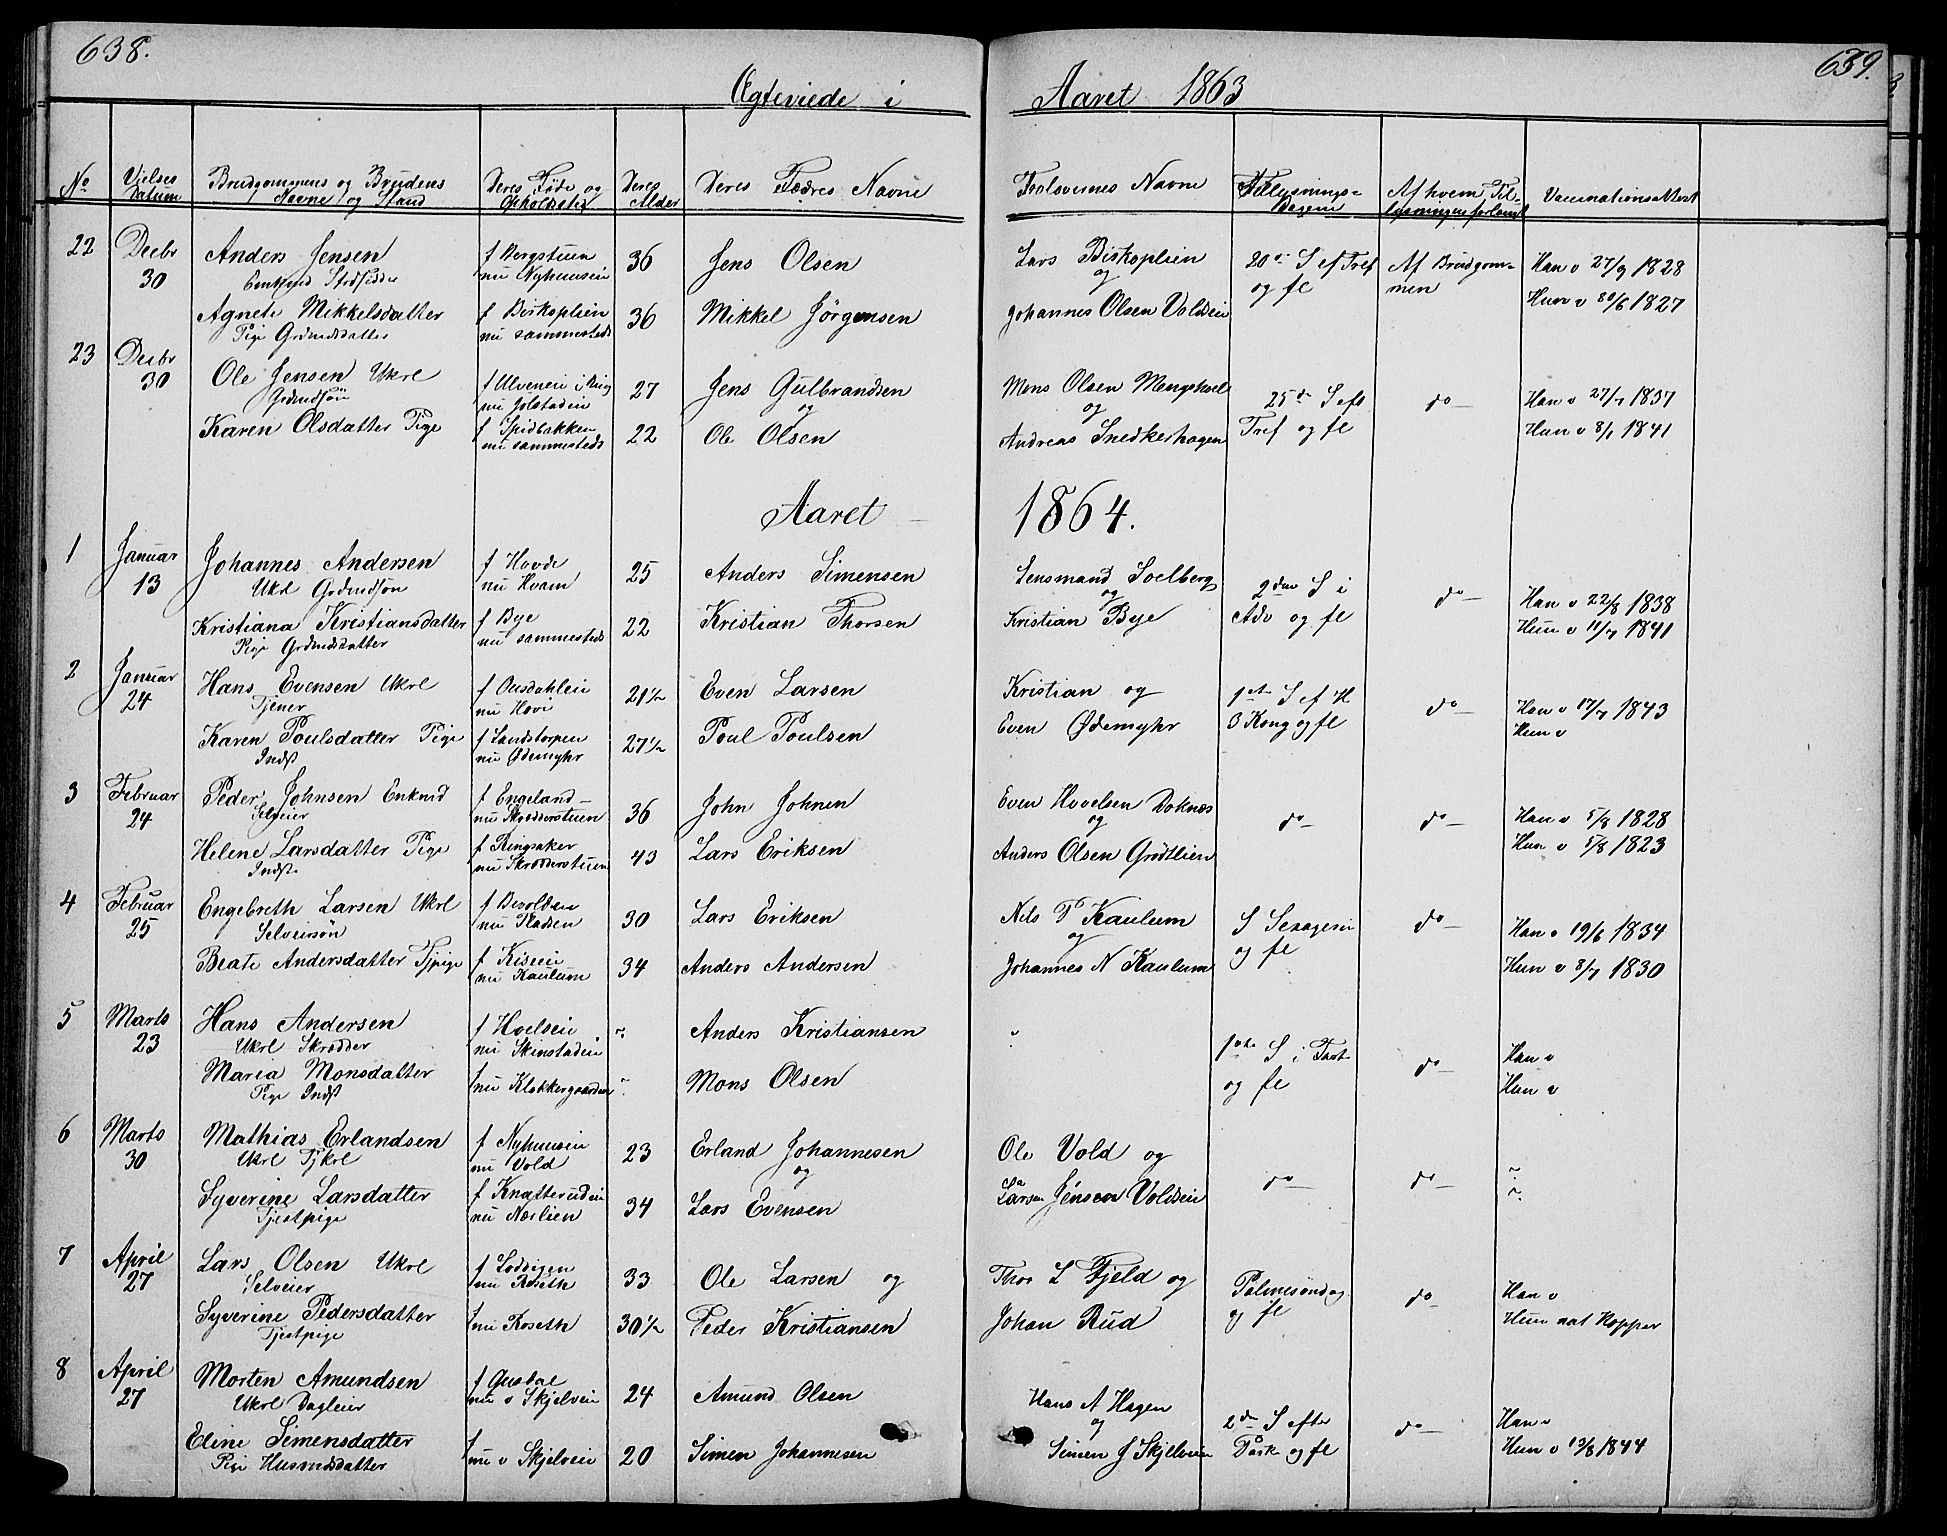 638.
639.
Ægteviede i Aaret 1863
No
Vielses Datum
Brudgommens og Brudens Navne og Stand
Deres Føde og Opholdsted
Deres Alder
Deres Fædres Navne
Forlovernes Navne
Tillysnings-Dagene
Af hvem Tillysningen forlangt
Vaccinationsattest
22 Decbr 30
Anders Jensen
f Bergstuen nu Nyhuuseie
36
Jens Olsen
Lars Biskoplien og
20de S ef Tref og fl
Af Brudgommen
Han v 27/9 1828
Agnete Mikkelsdatter
Pige Grdmdsdatter
f Biskoplien nu sammesteds
36
Mikkel Jörgensen
Johannes Olsen Voldeie
Hun v 30/6 1827
23 Decbr 30
Ole Jensen Ukrl
Grdmdsön
f Ulveneie i Ring nu Jolstadeie
27
Jens Gulbrandsen og
Mons Olsen Mengshoel og
25de S eft Tref og fl
do
Han v 27/7 1837
Karen Olsdatter Pige
f Spidbakken nu sammesteds
22
Ole Olsen
Andreas Snedkerhagen
Hun v 8/7 1841
Aaret 1864.
1 Januar 13
Johannes Andersen
Ukl Grdmdsön
f Hovde nu Hvam
25
Anders Simensen
Lensmand Soelberg og
2den S i Adv og fl
do
Han v 22/8 1838
Kristiana Kristiansdatter
Pige Grdmdsdatter
f Bye nu sammesteds
22
Kristian Thorsen
Kristian Bye
Hun v 11/7 1841
2 Januar 24
Hans Evensen Ukrl
Tjener
f Ousdahleie nu Hovi
21½
Even Larsen
Kristian og
1ste S ef H 3 Kong og fl
do
Han v 17/7 1843
Karen Poulsdatter Pige
Indst
f Landstorpen nu Ødemyhr
27½
Poul Poulsen
Even Ødemyhr
Hun v
3 Februar 24
Peder Johnsen Enkmd
Selveier
f Engeland nu Skrædderstuen
36
John Johnen
Even Hovelsen Doknæs og
do
do
Han v 5/8 1828
Helene Larsdatter Pige
Indst
f Ringsaker nu Skrædderstuen
43
Lars Eriksen
Anders Olsen Grøtlien
Hun v 5/8 1823
4 Februar 25
Engebreth Larsen Ukrl
Selveiersön
f Besolden nu Pladsen
30
Lars Eriksen
Nels P Kaulum og
S Sexagesi og fl
do
Han v 19/6 1834
Beate Andersdatter Tjpige
f Kiseeie nu Kaulum
34
Anders Andersen
Johannes N Kaulum
Hun v 8/7 1830
5 Marts 23
Hans Andersen
Ukrl Skrædder
f Hoelseie nu Skinstadeie
Anders Kristiansen
1ste S i Fast og fl
do
Han v
Maria Monsdatter
Pige Indst
f nu Klokkergaarden
Mons Olsen
Hun v
6 Marts 30
Mathias Erlandsen
Ukrl Tjkrl
f Nyhuuseie nu Vold
23
Erland Johannesen og
Ole Vold og
do
do
Syverine Larsdatter
Tjestpige
f Knatterudeie nu Nærlien
34
Lars Evensen
Larsen Jensen Voldeie
7 April 27
Lars Olsen Ukrl
Selveier
f Loddigen nu Roseth
33
Ole Larsen og
Thor L Fjeld og
Palmesöndag og fl
do
Han v
Syverine Pedersdatter
Tjestpige
f nu Roseth
30½
Peder Kristiansen
Johan Rud
Hun nat Kopper
8 April 27
Morten Amundsen
Ukrl Dagleier
f Gusdal nu v Skjelveie
24
Amund Olsen
Hans A Hagen og
2den S efter Paask og fl
do
Han v
Eline Simensdatter
Pige Husmdsdatter
f nu v Skjelveie
20
Simen Johannesen
Simen J Skjelveie
Hun v 13/8 1844